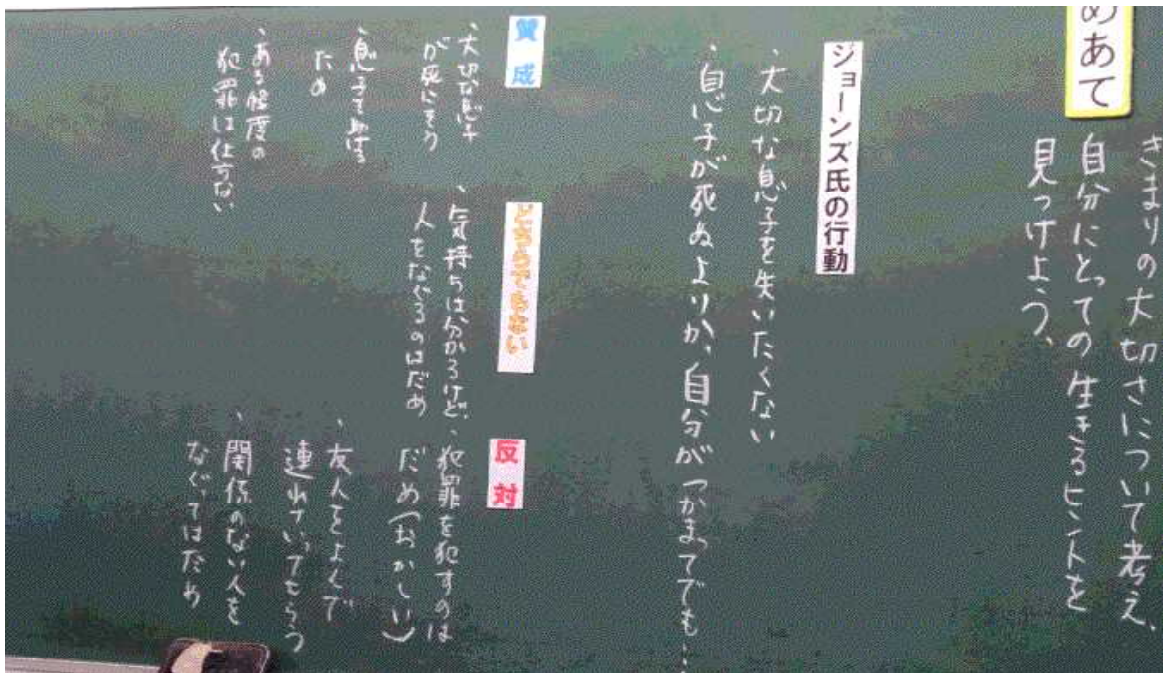 めあて
きまりの大切さについて考え、
自分にとっての生きるヒントを
見つけよう、
ジョーンズ氏の行動
、大切な息子を失いたくない
、自息子が死ぬよりか、自分がつかまってでも…
賛成
、大切な息子
が死にそう
、息子を助ける
ため
、ある程度の
犯罪は仕方ない
どちらでもない
、気持ちは分かるけど、
人をなぐるのはだめ
反対
、犯罪を犯すのは
だめ(おかしい)
、友人をよんで
連れていってもらう
、関係のない人を
なぐってはだめ